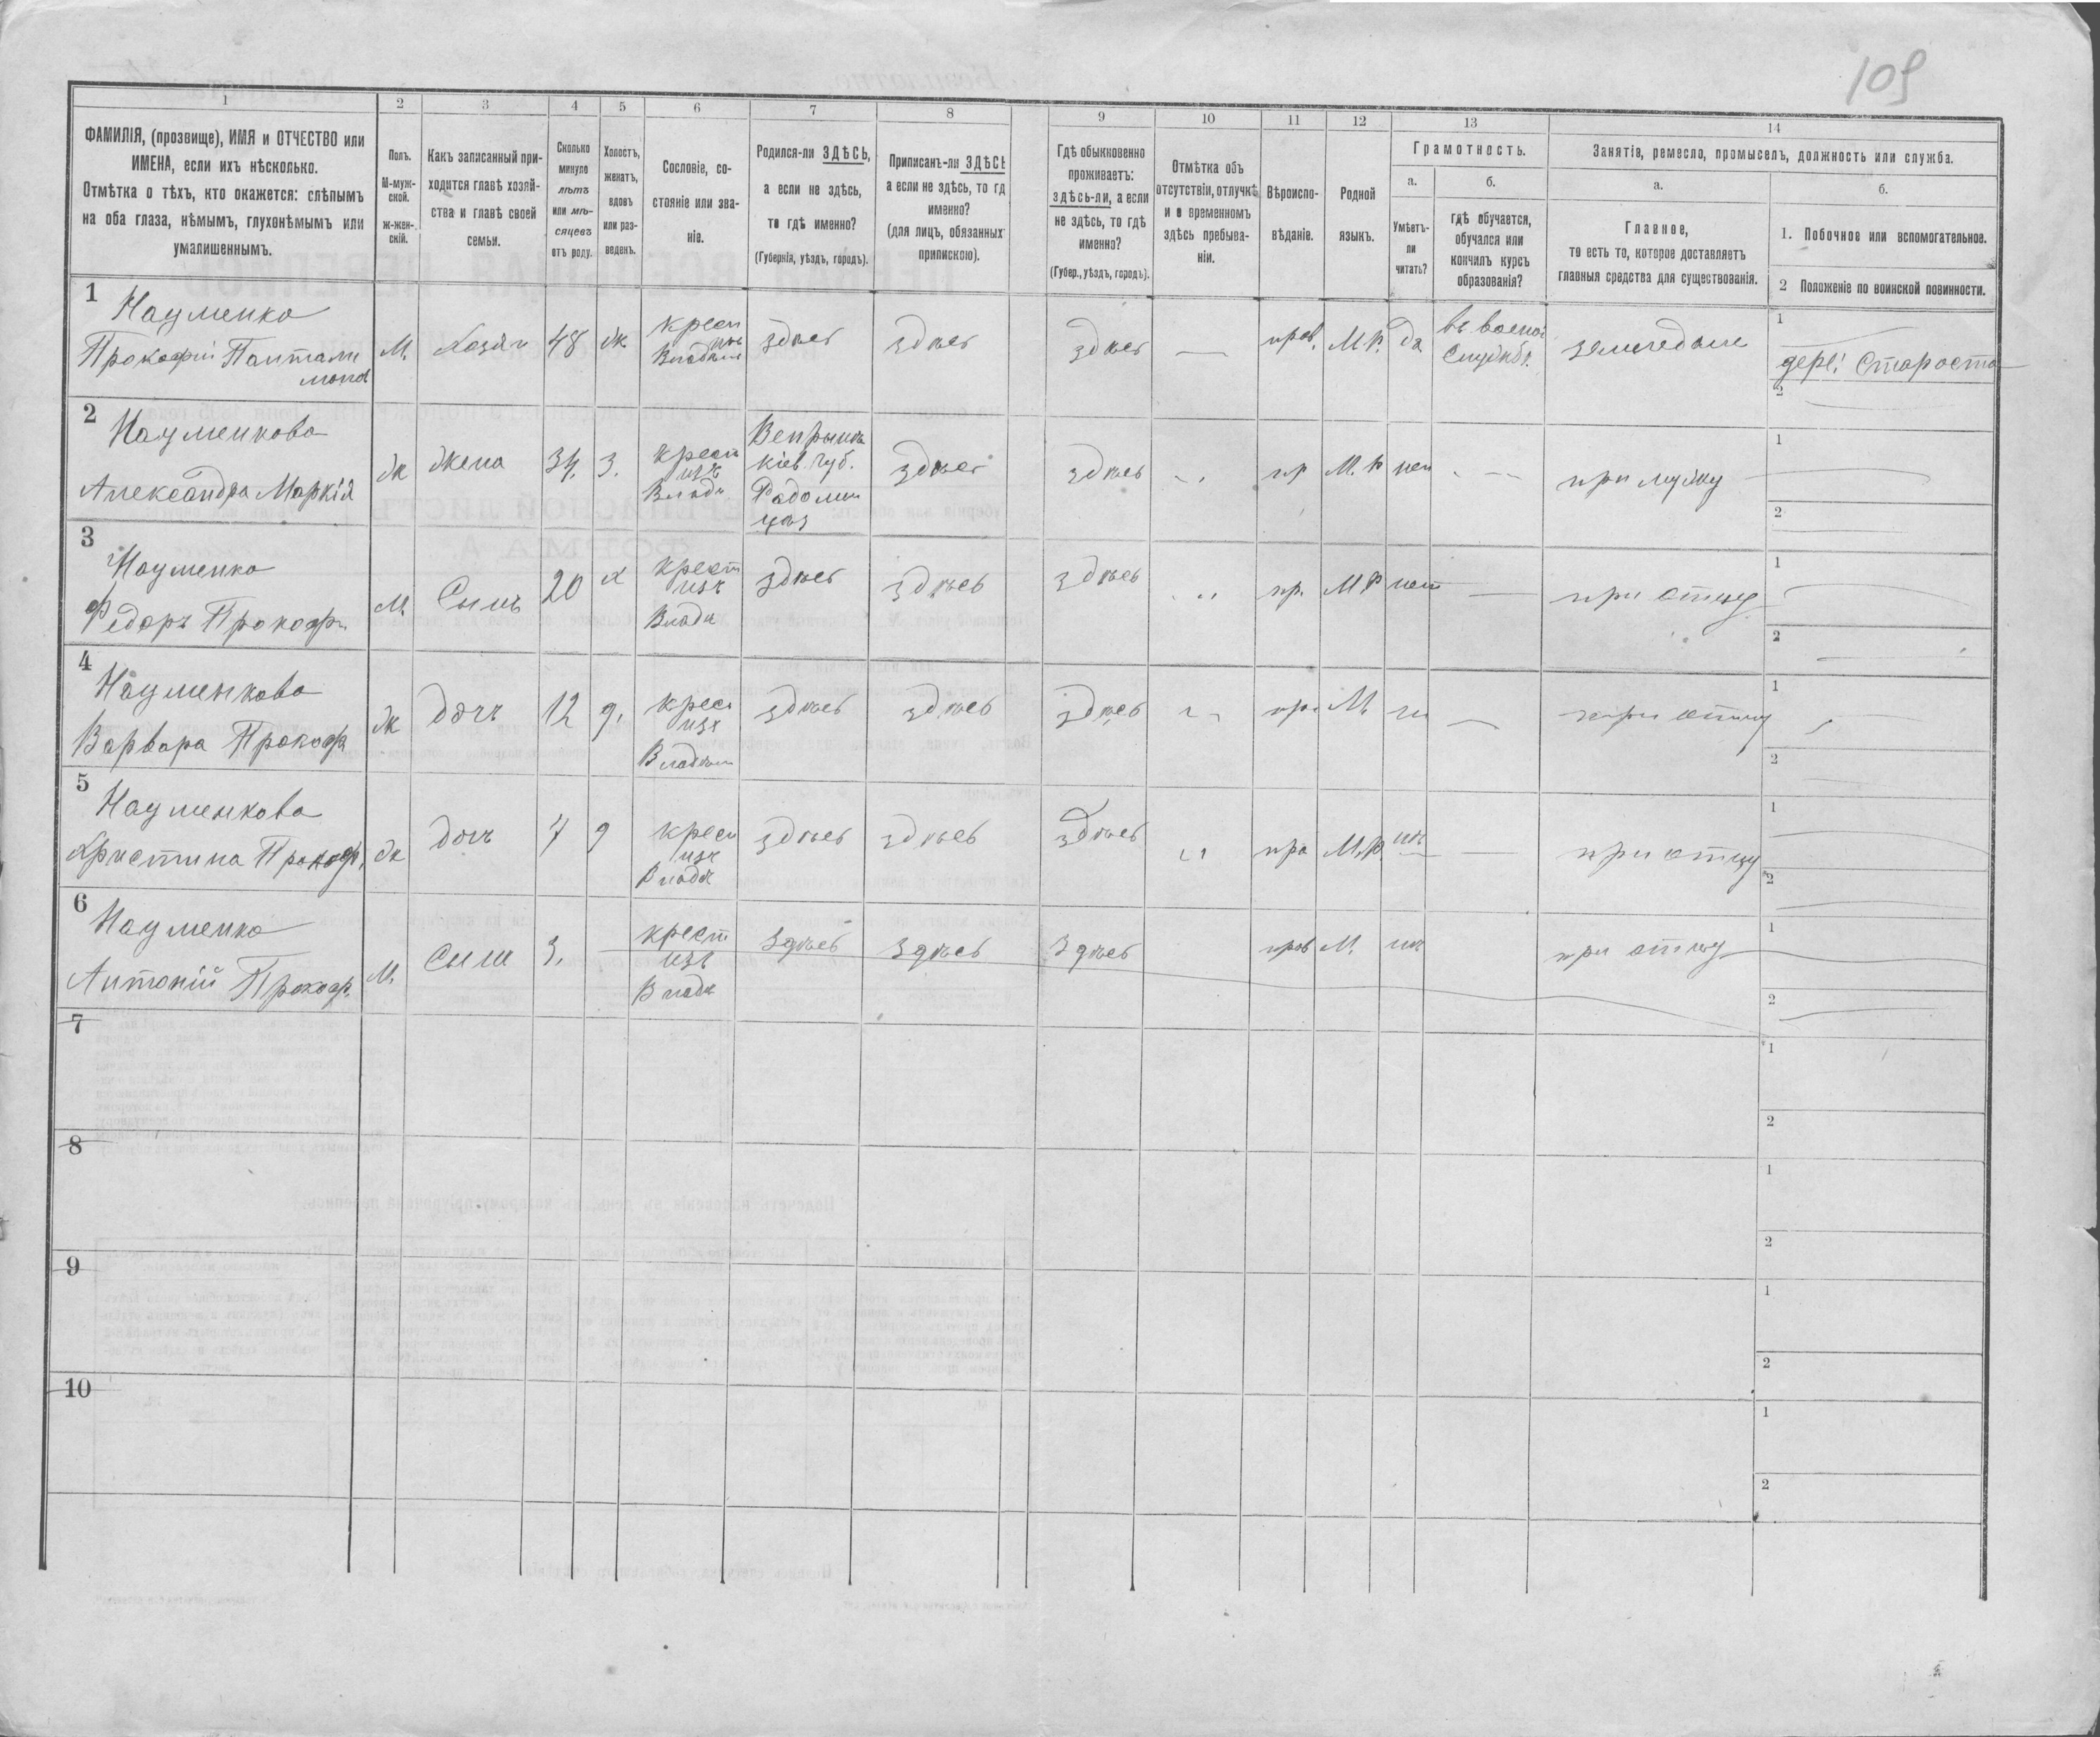 109
1
2
3
4
5
6
7
8
9
10
11
12
13
14
ФАМИЛІЯ, (прозвище), ИМЯ и ОТЧЕСТВО или
ИМЕНА, если ихъ нѣсколько.
Отмѣтка о тѣхъ, кто окажется: слѣпымъ
на оба глаза, нѣмымъ, глухонѣмымъ или
умалишеннымъ.
Полъ.
М-муж-
ской.
ж-жен-
скій.
Какъ записанный при-
ходится главѣ хозяй-
ства и главѣ своей
семьи.
Сколько
минуло
лѣтъ
или мѣ-
сяцевъ
отъ роду.
Холостъ,
женатъ,
вдовъ
или раз-
веденъ.
Сословіе, со-
стояніе или зва-
ніе.
Родился-ли ЗДѢСЬ,
а если не здѣсь,
то гдѣ именно?
(Губернія, уѣздъ, городъ).
Приписанъ-ли ЗДѢСЬ
а если не здѣсь, то гд
именно?
(для лицъ, обязанных
припискою).
Гдѣ обыкновенно
проживаетъ:
здѣсь-ли, а если
не здѣсь, то гдѣ
именно?
(Губер., уѣздъ, городъ).
Отмѣтка объ
отсутствіи, отлучкѣ
и о временномъ
здѣсь пребыва-
ніи.
Вѣроиспо-
вѣданіе.
Родной
языкъ.
Грамотность.
а.
Умѣетъ-
ли
читать?
б.
гдѣ обучается,
обучался или
кончилъ курсъ
образованія?
Занятіе, ремесло, промыселъ, должность или служба.
а.
Главное,
то есть то, которое доставляетъ
главныя средства для существованія.
б.
1. Побочное или вспомогательное.
2 Положеніе по воинской повинности.
1
Науменко
Прокофій Пантали
монов
М. Хозяи 48 ж. крест изъ Владѣл здѣсь здѣсь здѣсь — прав. М.Р. да въ воено службѣ. земледѣлие
1
дере: Староста
2
2
Науменкова
Александра Маркія
ж жена 34, з. крест изъ Влад.
кіев. губ.
здѣсь здѣсь пр М.Р нет при мужу
1
2
3
Науменко
Федоръ Прокофи
М. Сынъ 20 х крест изъ Владѣ здѣсь здѣсь здѣсь пр. М Р нет — при отцу
1
2
4
Науменкова
Варвара Прокоф
ж дочъ 12 д, крес изъ Владѣл здѣсь здѣсь здѣсь пра М. — при отцу
1
2
5
Науменкова
Христина Прокоф.
ж дочъ 7 д крест изъ Владѣ здѣсь здѣсь здѣсь пра М.Р. — при отцу
1
2
6
Науменко
Антоній Прокоф.
М. Сын 3, — крест изъ Владѣ здѣсь здѣсь здѣсь прав М. при отцу
1
2
7
1
2
8
1
2
9
1
2
10
1
2